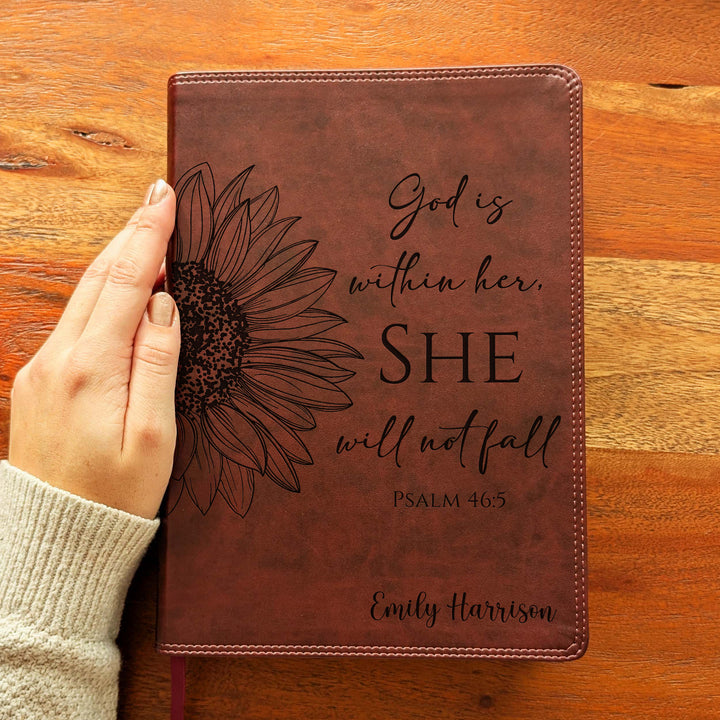 God is
within her,
SHE
will not fall
PSALM 46:5
Emily Harrison